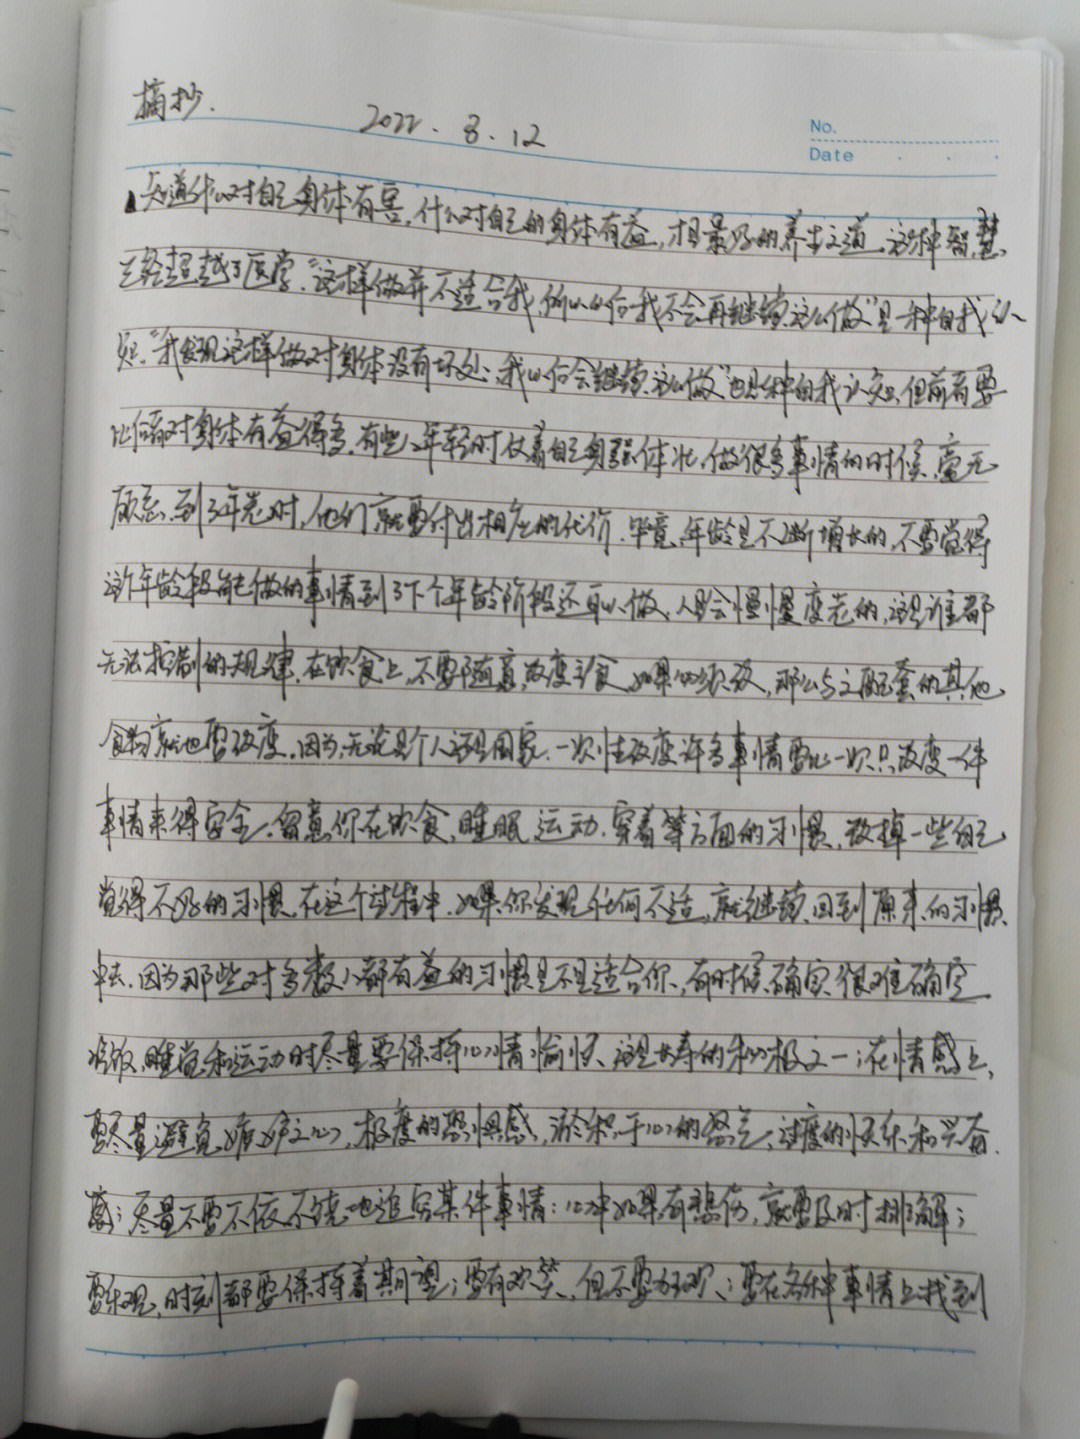 摘抄.
2022.8.12
No.
Date
知道什么对自己身体有害,什么对自己的身体有益,才是最好的养生之道.这种智慧
已经超越了医学.“这样做并不适合我,所以以后我不会再继续这么做”是一种自我认
知.“我发现这样做对身体没有坏处,我以后会继续这么做”也是种自我认知,但前者要
比后者对身体有益得多.有些人年轻时仗着自己身强体壮,做很多事情的时候,毫无
顾忌,到了年老时,他们就要付出相应的代价.毕竟,年龄是不断增长的,不要觉得
这个年龄段能做的事情到了下个年龄阶段还可以做,人是会慢慢变老的,这是谁都
无法控制的规律.在饮食上,不要随意改变主食,如果必须改,那么与之配套的其他
食物就也要改变.因为,无论是个人还是国家,一次性改变许多事情要比一次只改变一件
事情来得安全.留意你在饮食、睡眠、运动、穿着等方面的习惯,改掉一些自己
觉得不好的习惯.在这个过程中,如果你发现任何不适,就继续回到原来的习惯
中去.因为那些对多数人都有益的习惯是不是适合你,有时候确实很难确定.
吃饭、睡觉和运动时尽量要保持心情愉快,这是长寿的秘诀之一;在情感上,
要尽量避免嫉妒之心,极度的恐惧感,淤积于心的怒气、过度的快乐和兴奋
感;尽量不要不依不饶地追究某件事情;心中如果有悲伤,就要及时排解;
要乐观,时刻都要保持着期望;要有欢笑,但不要狂欢;要在各种事情上找到